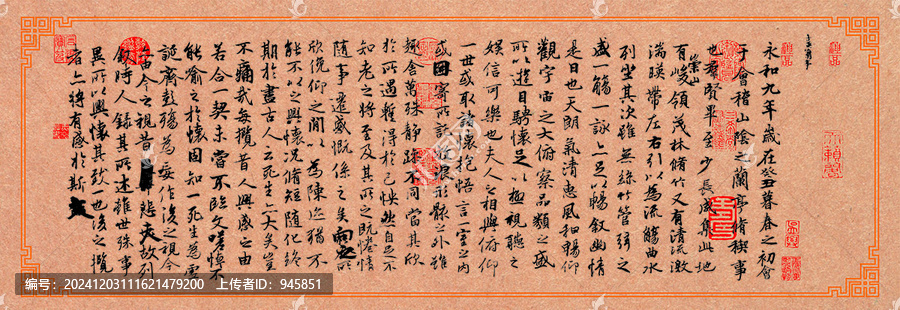 永和九年歲在癸丑暮春之初會
于會稽山陰之蘭亭脩稧事
也羣賢畢至少長咸集此地
有崇山峻領茂林脩竹又有清流激
湍暎帶左右引以為流觴曲水
列坐其次雖無絲竹管弦之
盛一觴一詠亦足以暢敘幽情
是日也天朗氣清惠風和暢仰
觀宇宙之大俯察品類之盛
所以遊目騁懷足以極視聽之
娛信可樂也夫人之相與俯仰
一世或取諸懷抱悟言一室之內
或因寄所託放浪形骸之外雖
趣舍萬殊靜躁不同當其欣
於所遇蹔得於己怏然自足不
知老之將至及其所之既惓情
隨事遷感慨係之矣向之所
欣俛仰之閒以為陳迹猶不
能不以之興懷況脩短隨化終
期於盡古人云死生亦大矣豈
不痛哉每攬昔人興感之由
若合一契未嘗不臨文嗟悼不
能喻之於懷固知一死生為虛
誕齊彭殤為妄作後之視今
亦由今之視昔悲夫故列
敘時人錄其所述雖世殊事
異所以興懷其致一也後之攬
者亦將有感於斯文
编号：20241203111621479200 上传者ID：945851